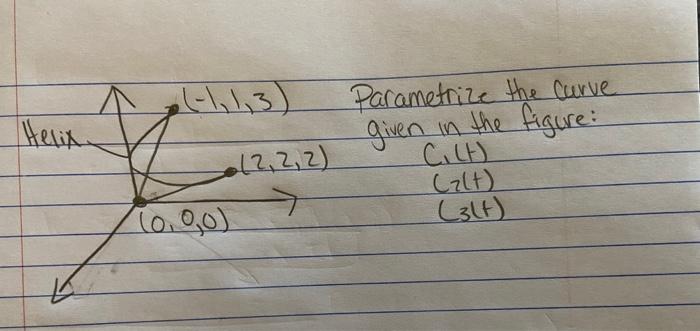 (-1,1,3)
Helix
(2,2,2)
(0,0,0)
Parametrize the curve
given in the figure:
C₁(t)
C₂(t)
C₃(t)